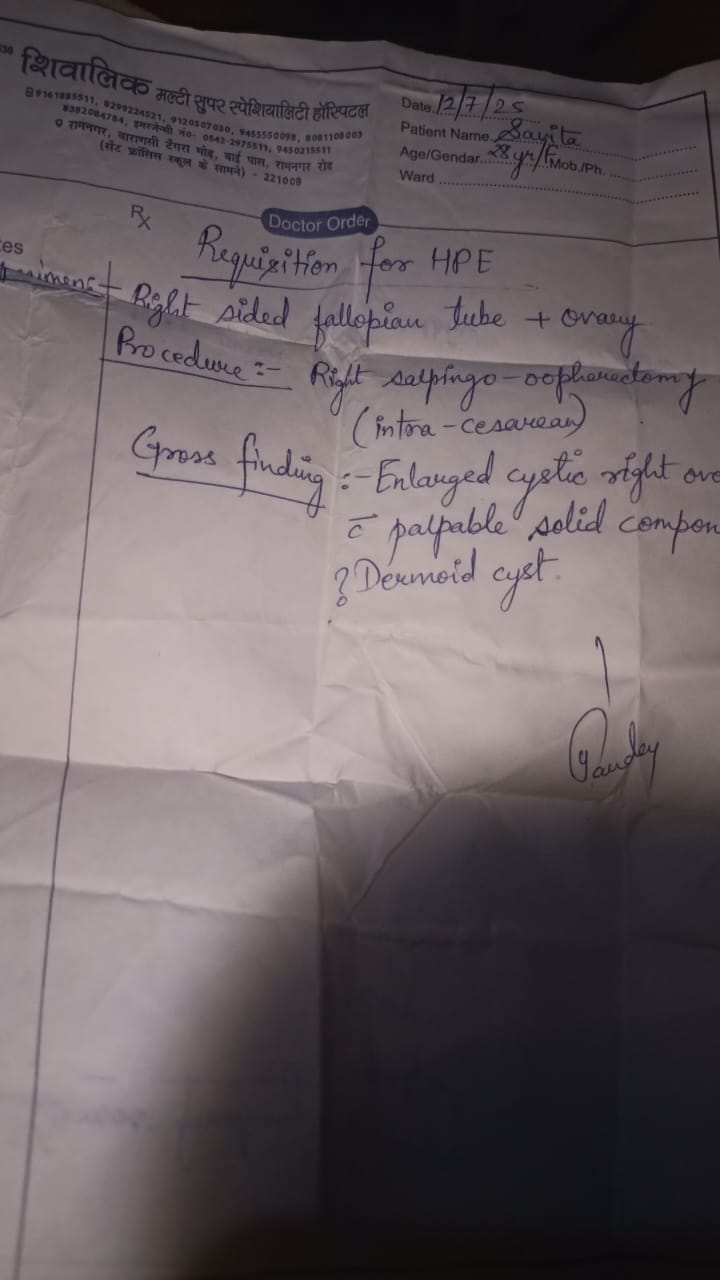 शिवालिक मल्टी सुपर स्पेशियालिटी हॉस्पिटल
9161885511, 8299224521, 9120507030, 9455550098, 8081108003
8382084784, इमरजेन्सी नं०- 0542-2975511, 9450215511
रामनगर, वाराणसी टेंगरा मोड़, बाई पास, रामनगर रोड
(सेंट फ्रांसिस स्कूल के सामने) - 221008
Date 12/7/25
Patient Name Savita
Age/Gendar 28 yr/F Mob./Ph.
Ward
Rx
Doctor Order
Requisition for HPE
Right sided fallopian tube + ovary
Procedure :- Right salpingo-oopherectomy
(intra-cesarean)
Gross finding :- Enlarged cystic right ova
c̄ palpable solid compon
? Dermoid cyst.
Pandey